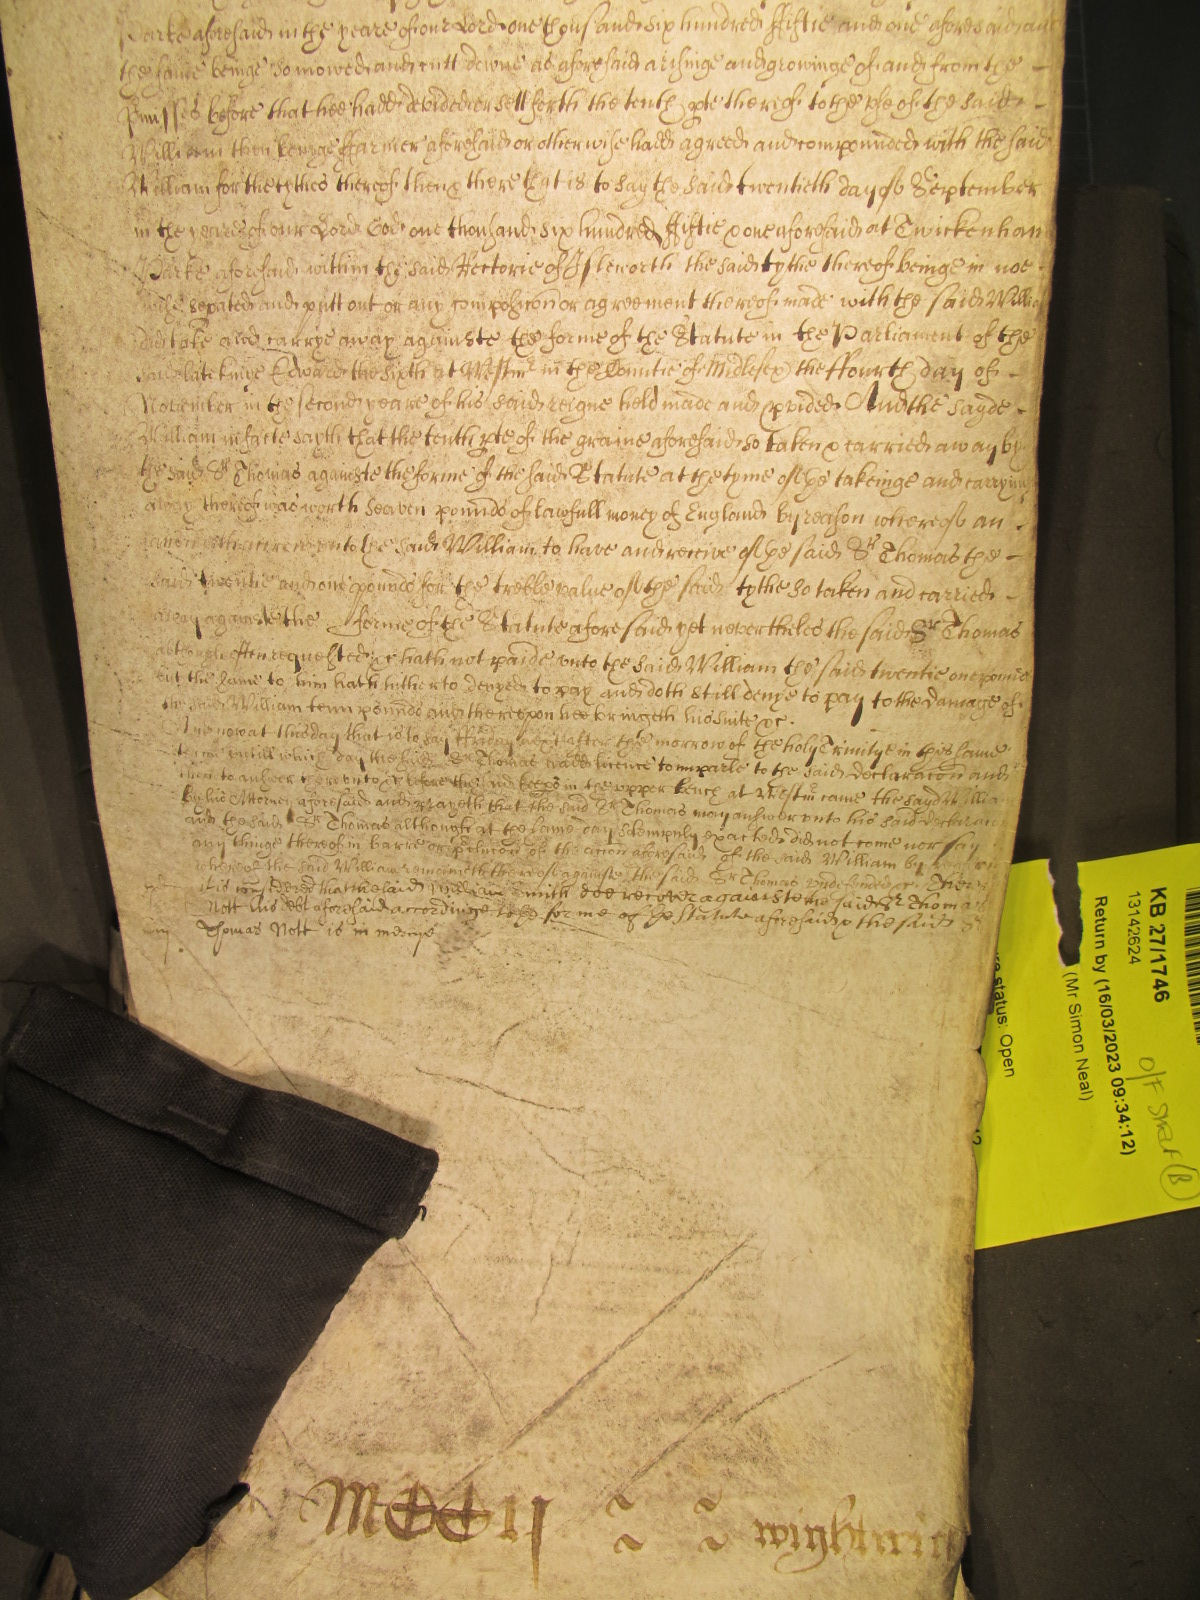 Parke aforesaid in the yeare of our Lord one thousand six hundred fiftie and one aforesaid and
the same beinge so mowed and cutt downe as aforesaid arisinge and growinge of and from the
pmisses before that hee hadd devided or sett forth the tenth pte thereof to the vse of the said
William then beinge ffarmer aforesaid or otherwise hadd agreed and compounded with the said
William for the tythes thereof then & there that is to say the said twentieth day of September
in the yeare of our Lord God one thousand six hundred ffiftie & one aforesaid at Twickenham
Parke aforesaid within the said Rectorie of Isleworth the said tythe thereof beinge in noe
wise sepated and putt out or any composicon or agreement thereof made with the said William
did take and carrye away againste the forme of the Statute in the Parliament of the
said late kinge Edward the sixth at Westm in the Countie of Midlesex the ffourth day of
November in the second yeare of his said reigne held made and pvided And the sayde
William in facte sayth that the tenth pte of the graine aforesaid so taken & carried away by
the said Sr Thomas againste the forme of the said Statute at the tyme of the takeinge and carrying
away thereof was worth seaven pounds of lawfull money of England by reason whereof an
accon hath accrewed vnto the said William to have and receive of the said Sr Thomas the
said twentie and one pounds for the treble value of the said tythe so taken and carried
away againste the forme of the Statute aforesaid yet nevertheles the said Sr Thomas
although often requested &c hath not paide vnto the said William the said twentie one pounds
but the same to him hath hitherto denyed to pay and doth still denye to pay to the damage of
the said William tenn pounds and therevpon hee bringeth his suite &c.
And now at this day that is to say ffriday next after the morrow of the holy Trinitye in this same
terme vntill which day the said Sr Thomas hadd licence to imparle to the said declaracon and
then to answer therevnto &c before the said keeps in the vpper bench at Westm came the sayd William
by his Attorney aforesaid and prayeth that the said Sr Thomas may answer vnto his said declaracon
and the said Sr Thomas although at the same day solempnly exacted did not come nor say
any thinge thereof in barre or pclusion of the accon aforesaid of the said William by
whereof the said William remaineth therevpon againste the said Sr Thomas vndefended &c Therefore
it is considered that the said William Smith doe recover againste the said Sr Thomas
Nott his debt aforesaid accordinge to the forme of the Statute aforesaid & the said Sr
Thomas Nott is in mercye
wightwick
KB 27/1746
13142624
Return by (16/03/2023 09:34:12)
(Mr Simon Neal)
status: Open
O/F Shelf (B)